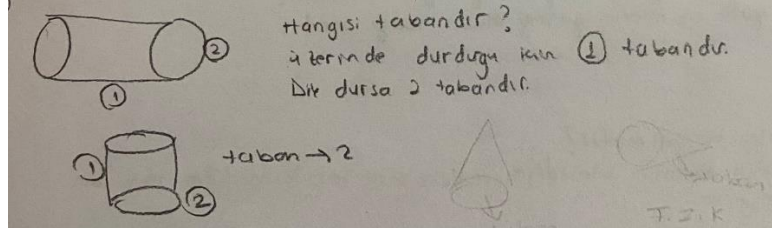 Hangisi tabandır?
üzerinde durduğu için ① tabandır.
Dik dursa 2 tabandır.
②
①
① taban → 2
②
taban
T.Z.K